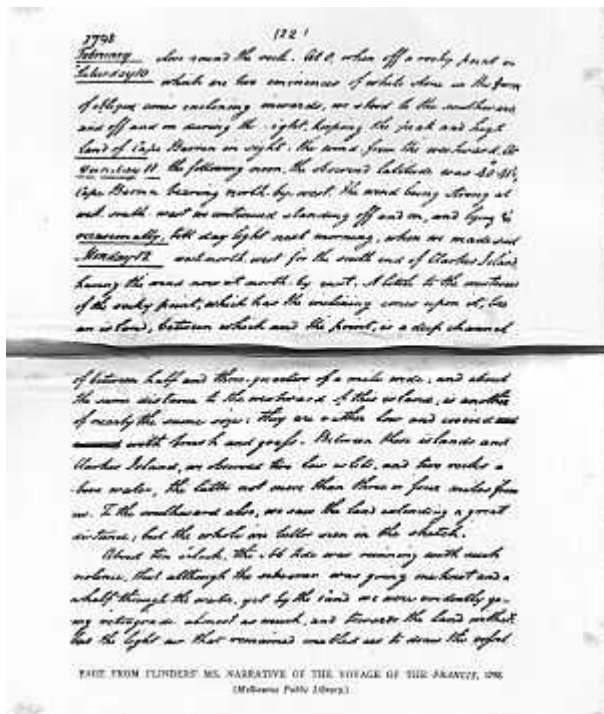 1798 (22)
February close round the rock. At 8, when off a rocky point on
Saturday 10 which are two eminences of white stone in the form
of oblique cones inclining inwards, we stood to the southward
and off and on during the night, keeping the peak and high
land of Cape Barren in sight, the wind from the westward. At
Sunday 11 the following noon, the observed latitude was 40°
Cape Barren bearing north by west. The wind being strong at
west south west we continued standing off and on, and lying to
occasionally, till day light next morning, when we made sail
Monday 12 west north west for the south end of Clarkes Island
having the now at north by east. A little to the westward
of the rocky point, which has the inclining cones upon it, lies
an island, between which and the point, is a deep channel
of between half and three quarters of a mile wide; and about
the same distance to the westward of this island, is another
of nearly the same size: they are rather low and covered
with brush and grass. Between these islands and
Clarkes Island, we observed two low islets, and two rocks a
bove water, the latter not more than three or four miles from
us. To the southward also, we saw the land extending a great
distance; but the whole is better seen in the sketch.
About ten o'clock, the ebb tide was running with such
violence, that although the schooner was going one knot and a
half through the water, yet by the land we were evidently go-
ing retrograde almost as much, and towards the land withal;
but the light air that remained enabled us to draw the vessel
PAGE FROM FLINDERS' MS. NARRATIVE OF THE VOYAGE OF THE FRANCIS, 1798
(Melbourne Public Library.)